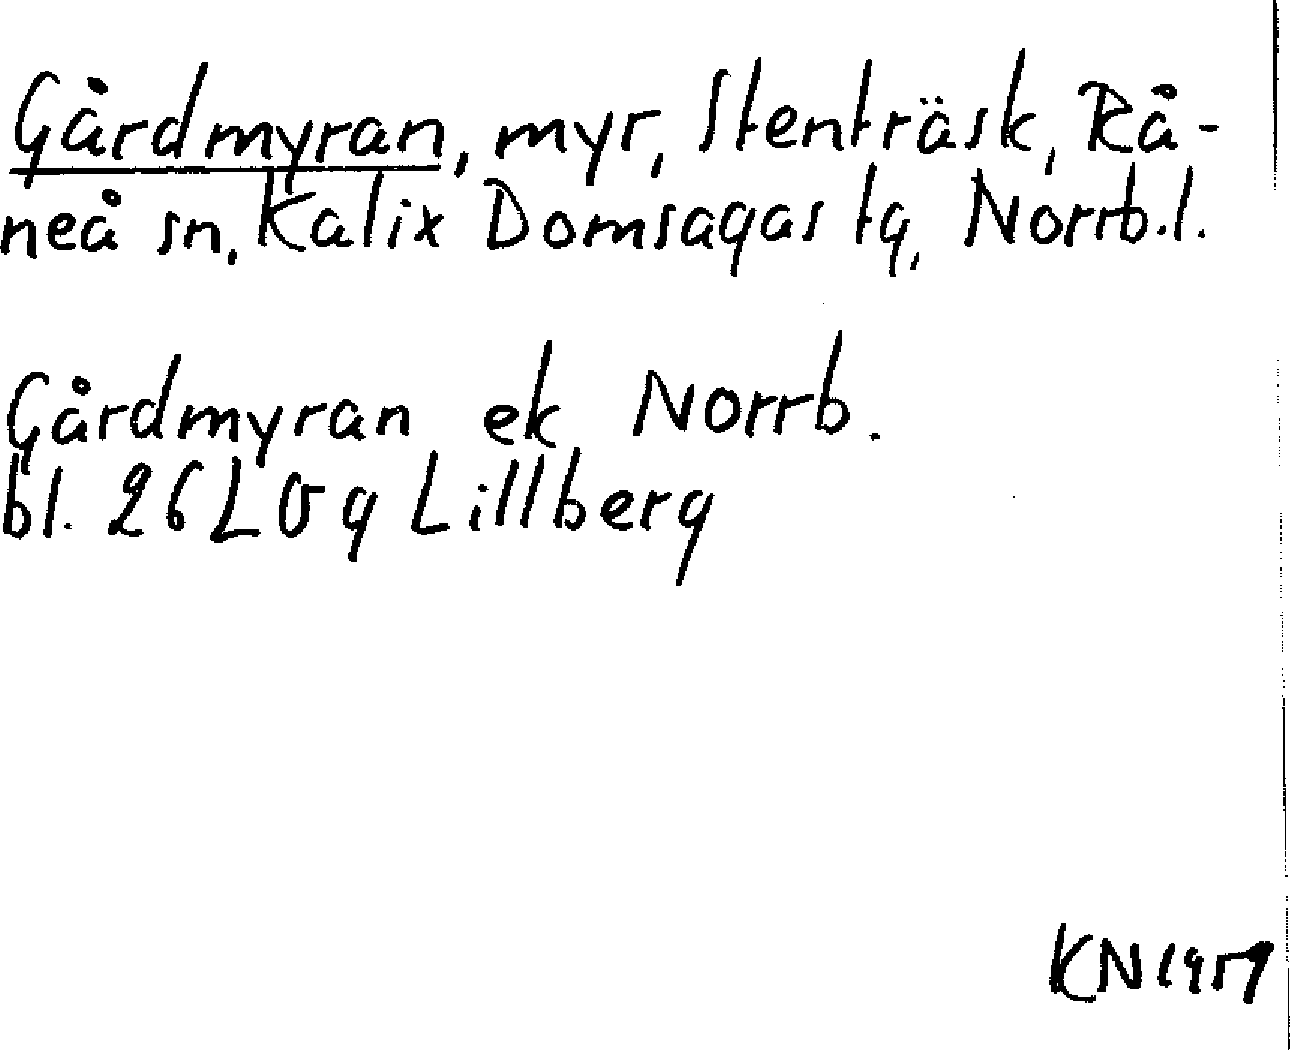 Gårdmyran, myr, Stenträsk, Rå-
neå sn, Kalix Domsagas tg, Norrb.l.
Gårdmyran ek Norrb.
bl. 26L 0g Lillberg
KN